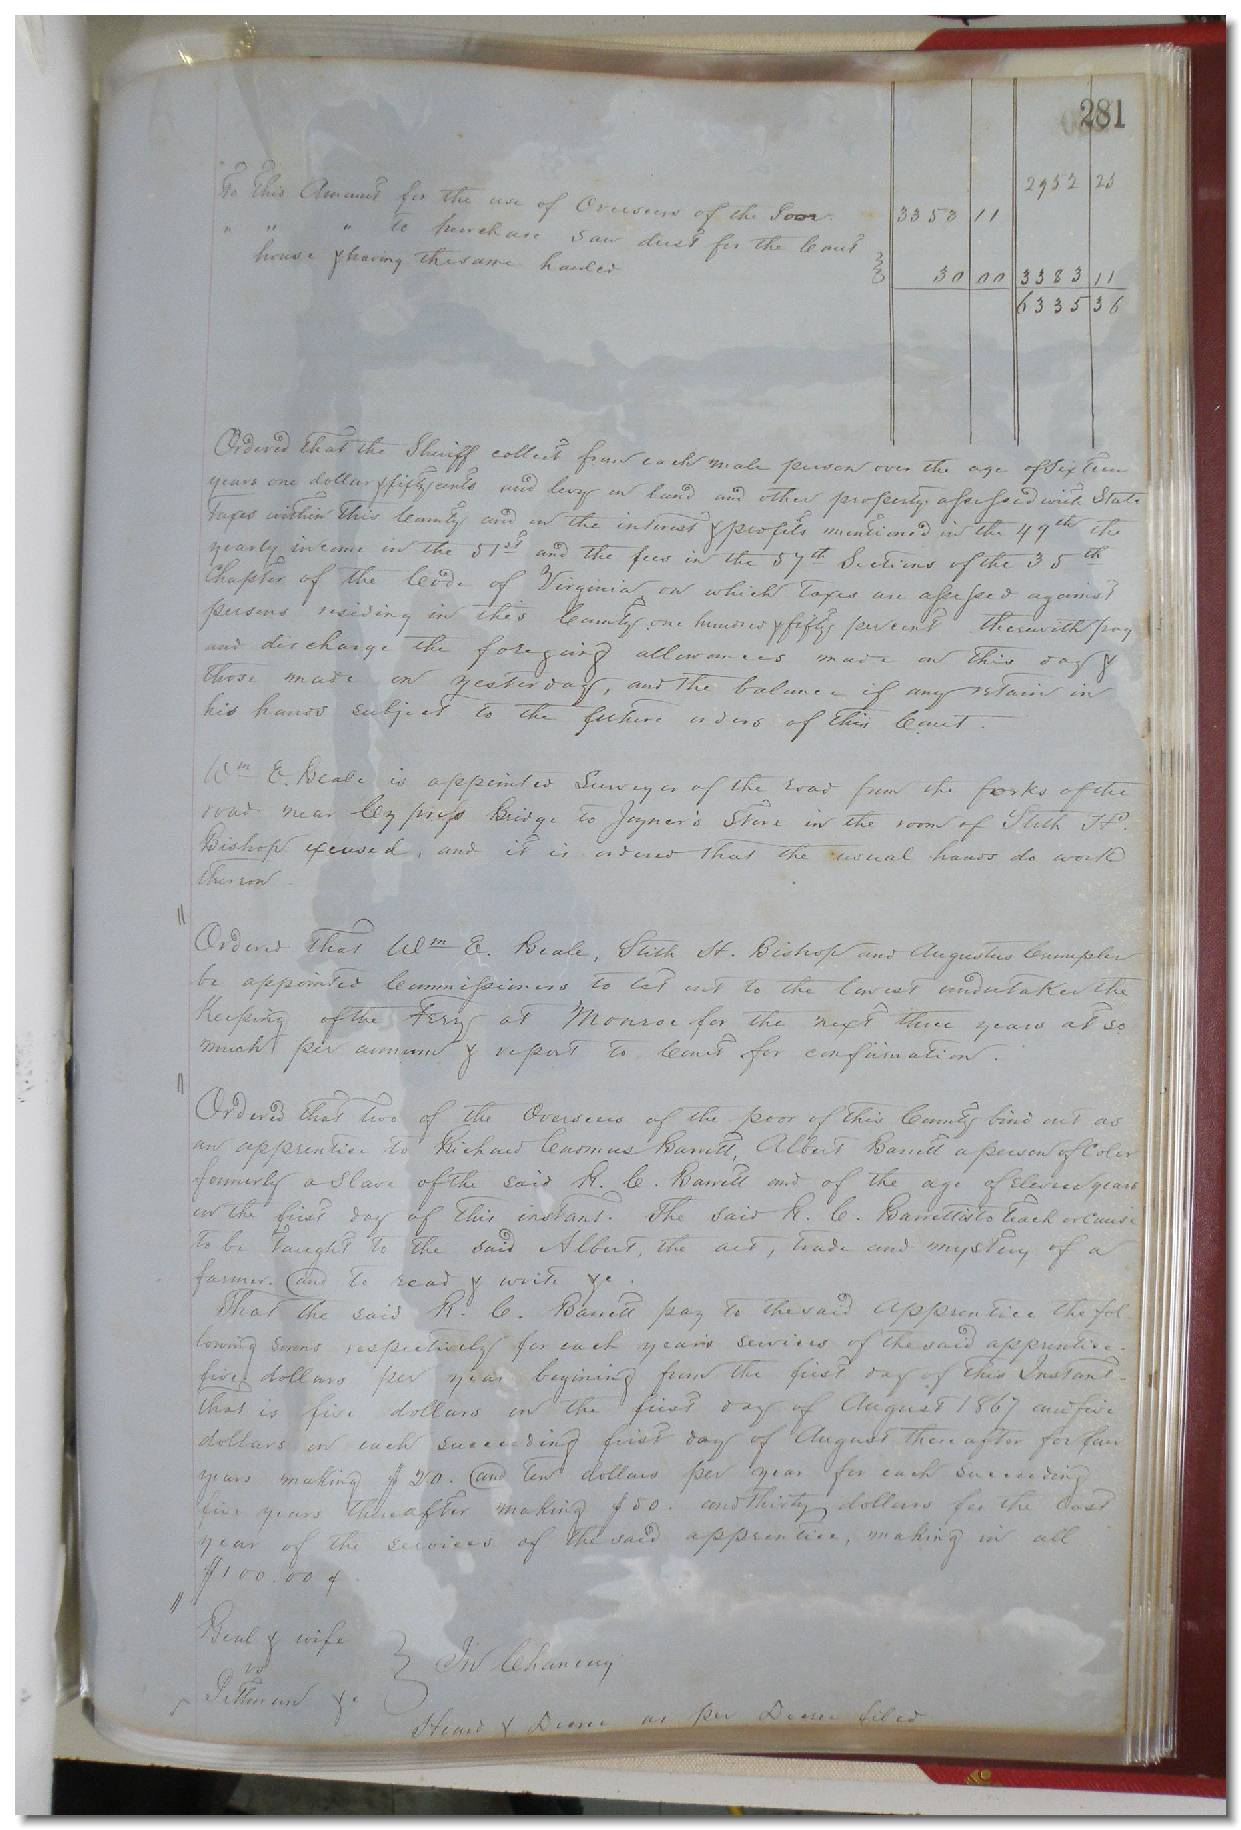 281
2952 25
To this Amount for the use of Overseers of the Poor 3353 11
" " " to purchase saw dust for the Court
house & having the same hauled 30 00 3383 11
6335 36
Ordered that the Sheriff collect from each male person over the age of Sixteen
years one dollar & fifty cents and levy on land and other property assessed with State
Taxes within this County and on the interest & profits mentioned in the 49th the
yearly income in the 51st and the fees in the 57th Sections of the 35th
Chapter of the Code of Virginia on which Taxes are assessed against
persons residing in this County one hundred & fifty per cent therewith pay
and discharge the foregoing allowances made on this day &
those made on yesterday, and the balance if any retain in
his hands subject to the future orders of this Court.
Wm E. Beale is appointed Surveyor of the road from the forks of the
road near Cypress Bridge to Joyner's Store in the room of Stith H.
Bishop excused, and it is ordered that the usual hands do work
thereon
"
Ordered that Wm E. Beale, Stith H. Bishop and Augustus Crumpler
be appointed Commissioners to let out to the lowest undertaker the
Keeping of the Ferry at Monroe for the next three years at so
much per annum & report to Court for confirmation.
"
Ordered that two of the Overseers of the poor of this County bind out as
an apprentice to Richard Barrett, Albert Barrett a person of Color
formerly a Slave of the said R. C. Barrett and of the age of Eleven years
on the first day of this instant. The said R. C. Barrett is to Teach or Cause
to be taught to the said Albert, the art, trade and mystery of a
farmer. and to read & write &c.
That the said R. C. Barrett pay to the said Apprentice the fol
lowing sums respectively for each years services of the said apprentice.
five dollars per year begining from the first day of this Instant
that is five dollars on the first day of August 1867 and five
dollars on each succeeding first day of August thereafter for four
years making $20. and Ten dollars per year for each succeeding
five years thereafter making $50. and thirty dollars for the last
year of the services of the said apprentice, making in all
$100.00
"
Beal & wife
vs
Pittman &c
In Chancery
Heard & Decree as per Decree filed